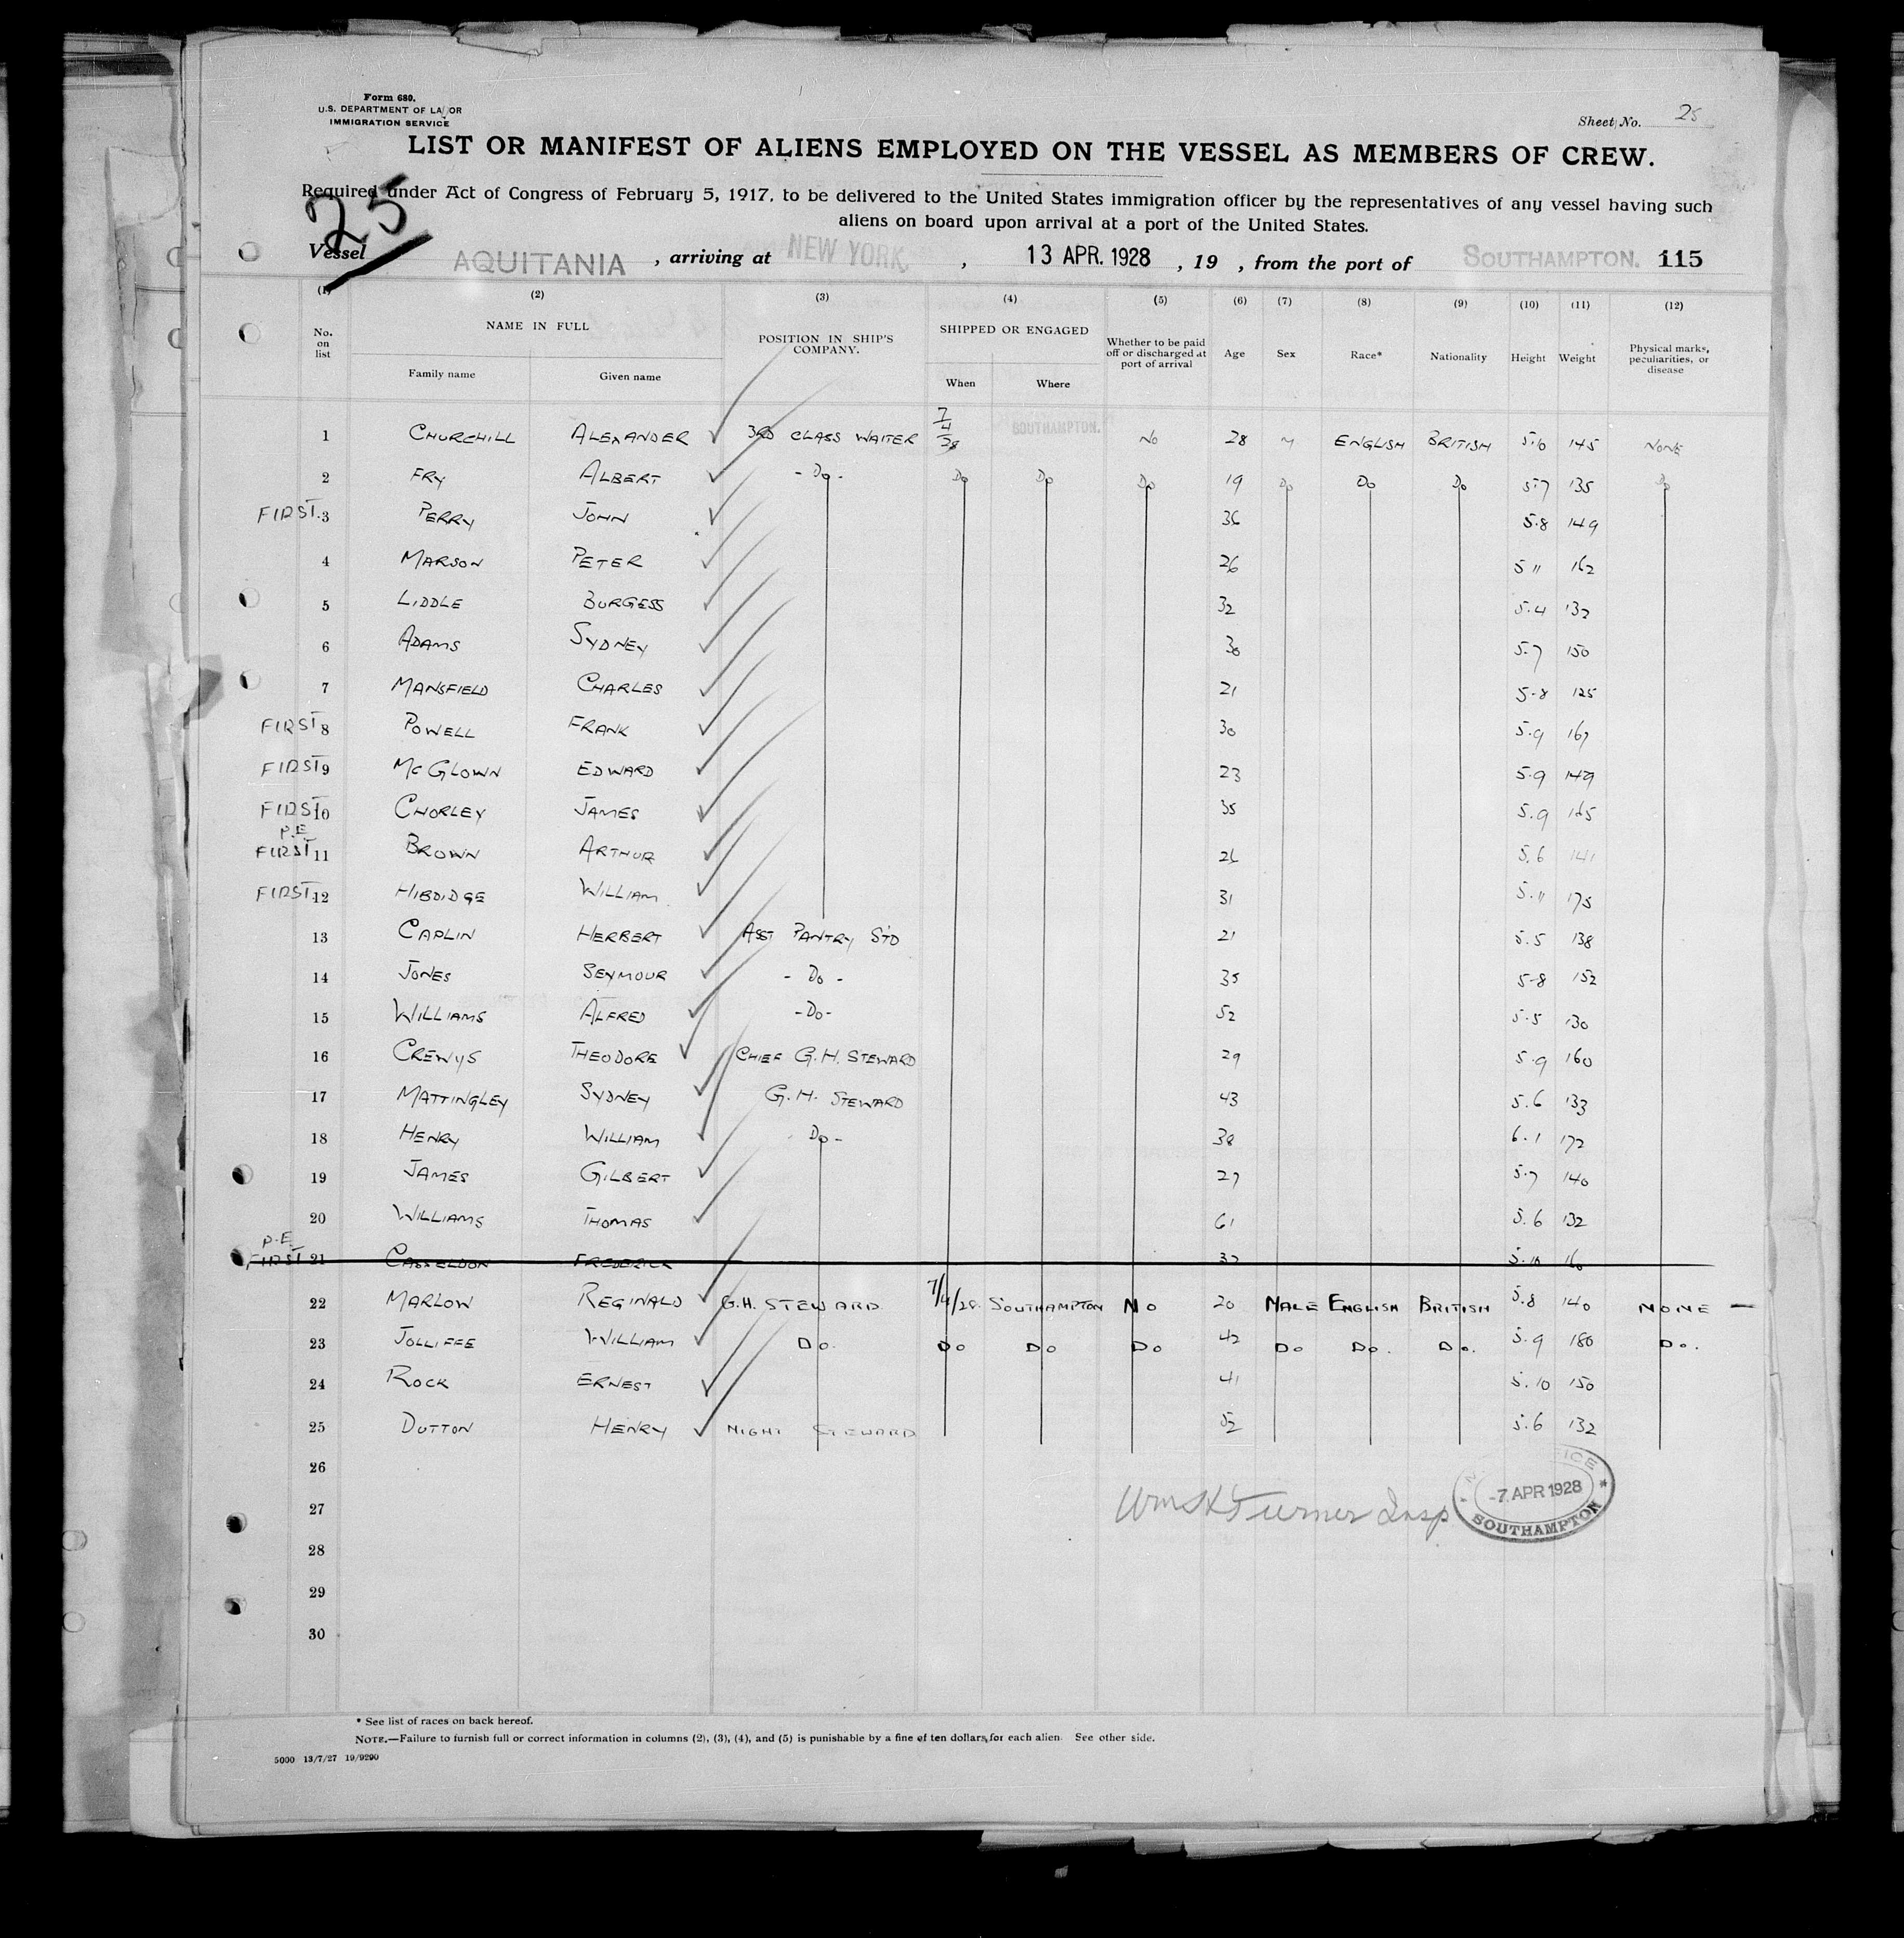 Form 680.
U.S. DEPARTMENT OF LABOR
IMMIGRATION SERVICE
Sheet No. 25
LIST OR MANIFEST OF ALIENS EMPLOYED ON THE VESSEL AS MEMBERS OF CREW.
Required under Act of Congress of February 5, 1917, to be delivered to the United States immigration officer by the representatives of any vessel having such
aliens on board upon arrival at a port of the United States.
25
Vessel AQUITANIA , arriving at NEW YORK , 13 APR. 1928 , 19 , from the port of SOUTHAMPTON. 115
(1) (2) (3) (4) (5) (6) (7) (8) (9) (10) (11) (12)
No. on list NAME IN FULL POSITION IN SHIP'S COMPANY. SHIPPED OR ENGAGED Whether to be paid off or discharged at port of arrival Age Sex Race* Nationality Height Weight Physical marks, peculiarities, or disease
Family name Given name When Where
1 CHURCHILL ALEXANDER 3RD CLASS WAITER 7/4/28 SOUTHAMPTON. NO 28 M ENGLISH BRITISH 5.10 145 NONE
2 FRY ALBERT - DO - DO DO DO 19 DO DO DO 5.7 135 DO
FIRST 3 PERRY JOHN 36 5.8 149
4 MARSON PETER 26 5 11 162
5 LIDDLE BURGESS 32 5.4 132
6 ADAMS SYDNEY 30 5.7 150
7 MANSFIELD CHARLES 21 5-8 125
FIRST 8 POWELL FRANK 30 5.9 167
FIRST 9 McGLOWN EDWARD 23 5.9 149
FIRST 10 CHORLEY JAMES 35 5.9 165
P.E.
FIRST 11 BROWN ARTHUR 26 5.6 141
FIRST 12 HIBDIDGE WILLIAM 31 5.11 175
13 CAPLIN HERBERT ASST PANTRY STD 21 5.5 138
14 JONES SEYMOUR - DO - 35 5-8 152
15 WILLIAMS ALFRED - DO - 52 5.5 130
16 CREWYS THEODORE CHIEF G.H. STEWARD 29 5.9 160
17 MATTINGLEY SYDNEY G.H. STEWARD 43 5.6 133
18 HENRY WILLIAM DO - 38 6.1 172
19 JAMES GILBERT 27 5.7 140
20 WILLIAMS THOMAS 61 5.6 132
P.E.
FIRST 21 CASSELDON FREDERICK 5.10 160
22 MARLOW REGINALD G.H. STEWARD 7/4/28. SOUTHAMPTON NO 20 MALE ENGLISH BRITISH 5.8 140 NONE —
23 JOLLIFFE WILLIAM DO. DO DO DO 42 DO DO. DO. 5.9 180 DO.
24 ROCK ERNEST 41 5.10 150
25 DUTTON HENRY NIGHT STEWARD 52 5.6 132
26
27
28
29
30
Wm H Turner Insp
-7 APR 1928
SOUTHAMPTON
* See list of races on back hereof.
NOTE.—Failure to furnish full or correct information in columns (2), (3), (4), and (5) is punishable by a fine of ten dollars for each alien. See other side.
5000 13/7/27 19/9290